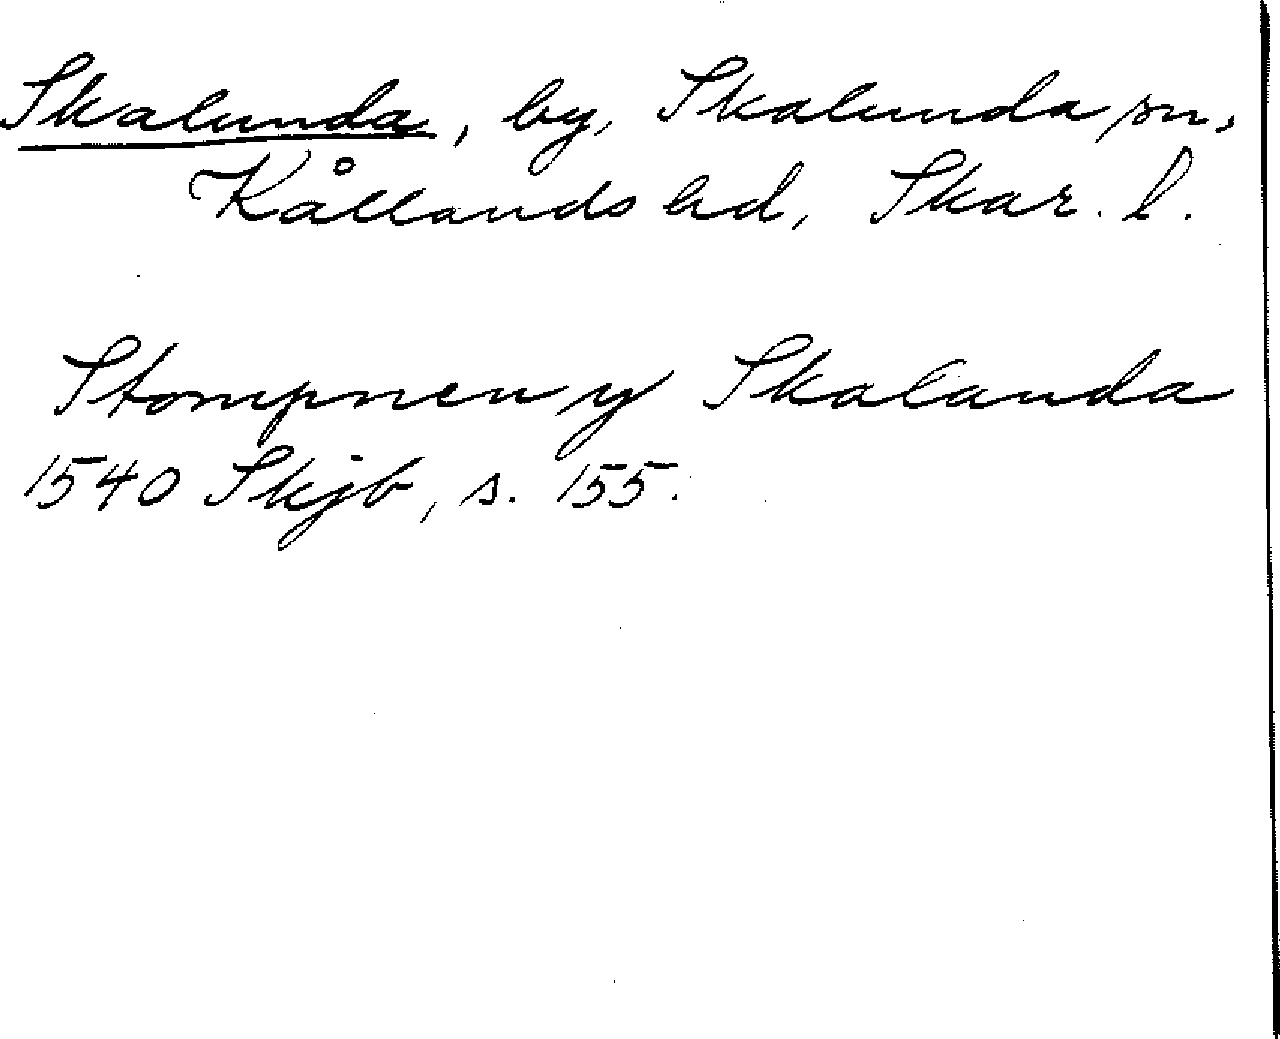 Skalunda, by, Skalunda sn,
Kållands hd, Skar. l.
Stompnen y Skalanda
1540 Skjb, s. 155.